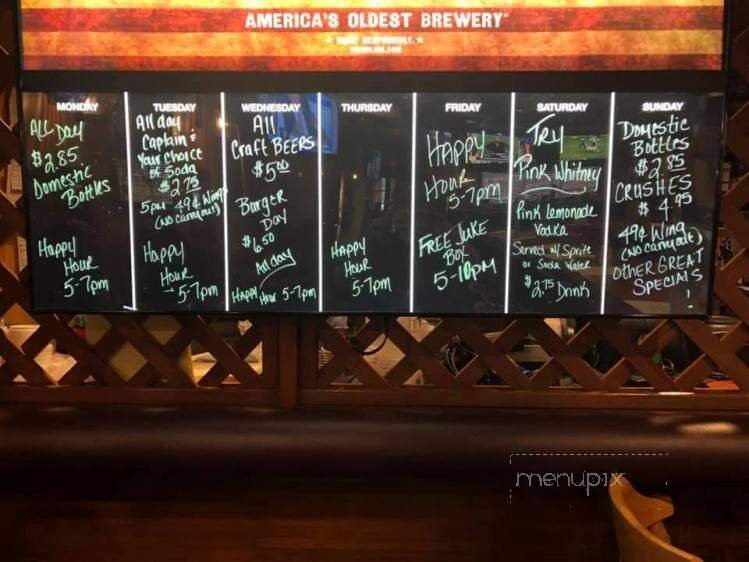 AMERICA'S OLDEST BREWERY
MONDAY
All Day
$2.85
Domestic
Bottles
Happy
Hour
5-7pm
TUESDAY
All day
Captain &
Your Choice
of Soda
$2.75
5pm 49¢ Wings
(no carryout)
Happy
Hour
→ 5-7pm
WEDNESDAY
All
Craft BEERS
$5.00
Burger
Day
$6.50
All day
Happy Hour 5-7pm
THURSDAY
Happy
Hour
5-7pm
FRIDAY
Happy
Hour
5-7pm
FREE Juke
Box
5-10pm
SATURDAY
TRY
Pink Whitney
Pink Lemonade
Vodka
Served w/ Sprite
or Soda Water
$2.75 Drink
SUNDAY
Domestic
Bottles
$2.85
CRUSHES
$4.95
49¢ Wing
(no carryout)
OTHER GREAT
SPECIALS
!
menupix